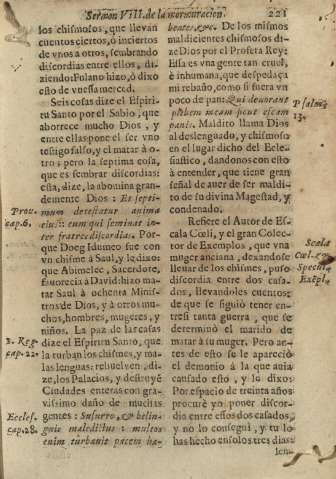 Sermon VIII. de la murmuracion. 221
los chismosos, que llevan
cuentos ciertos, ò inciertos
de vnos a otros, sembrando
discordias entre ellos, di-
ziendo: Fulano hizo, ò dixo
esto de vuessa merced.
Seis cosas dize el Espiri-
tu Santo por el Sabio, que
aborrece mucho Dios, y
entre ellas pone el ser vno
testigo falso, y el matar à o-
tro; pero la septima cosa,
que es sembrar discordias:
esta, dize, la abomina gran-
demente Dios: Et septi-
mum detestatur anima
eius: eum qui seminat in-
ter fratres discordias. Por-
que Doeg Idumeo fue con
vn chisme à Saul, y le dixo
que Abimelec, Sacerdote,
favorecia à David: hizo ma-
tar Saul à ochenta Minis-
tros de Dios, y à otros mu-
chos, hombres, mugeres, y
niños. La paz de las casas
dize el Espiritu Santo, que
la turban los chismes, y ma-
las lenguas: rebuelven, di-
ze, los Palacios, y destruye
Ciudades enteras con gra-
vissimo daño de muchas
gentes: Susurro, & bilin-
guis maledictus: multos
enim turbavit pacem ha-
Prou.
cap. 6.
1. Reg.
cap. 22.
Eccles.
cap. 28.
bentes, &c. De los mismos
maldicientes chismosos di-
ze Dios por el Profeta Rey:
Essa es vna gente tan cruel,
è inhumana, que despedaça
mi rebaño, como si fuera vn
poco de pan: Qui devorant
plebem meam sicut escam
panis. Maldito llama Dios
al deslenguado, y chismoso
en el lugar dicho del Ecle-
siastico, dandonos con esto
à entender, que tiene gran
señal de auer de ser maldi-
to de su divina Magestad, y
condenado.
Refiere el Autor de Es-
cala Cœli, y el gran Colec-
tor de Exemplos, que vna
muger anciana, dexandose
lleuar de los chismes, puso
discordia entre dos casa-
dos, llevandoles cuentos
de que se siguiò tener en-
tre si tanta guerra, que se
determinò el marido de
matar à su muger. Pero an-
tes de esto se le apareciò
el demonio à la que auia
causado esto, y lo dixo:
Por espacio de treinta años
procurè yo poner discor-
dia entre essos dos casados,
y no lo consegui, y tu lo
has hecho en solos tres dias
Psalm.
13.
Scala
Cœl.
Specul.
Exẽpl.